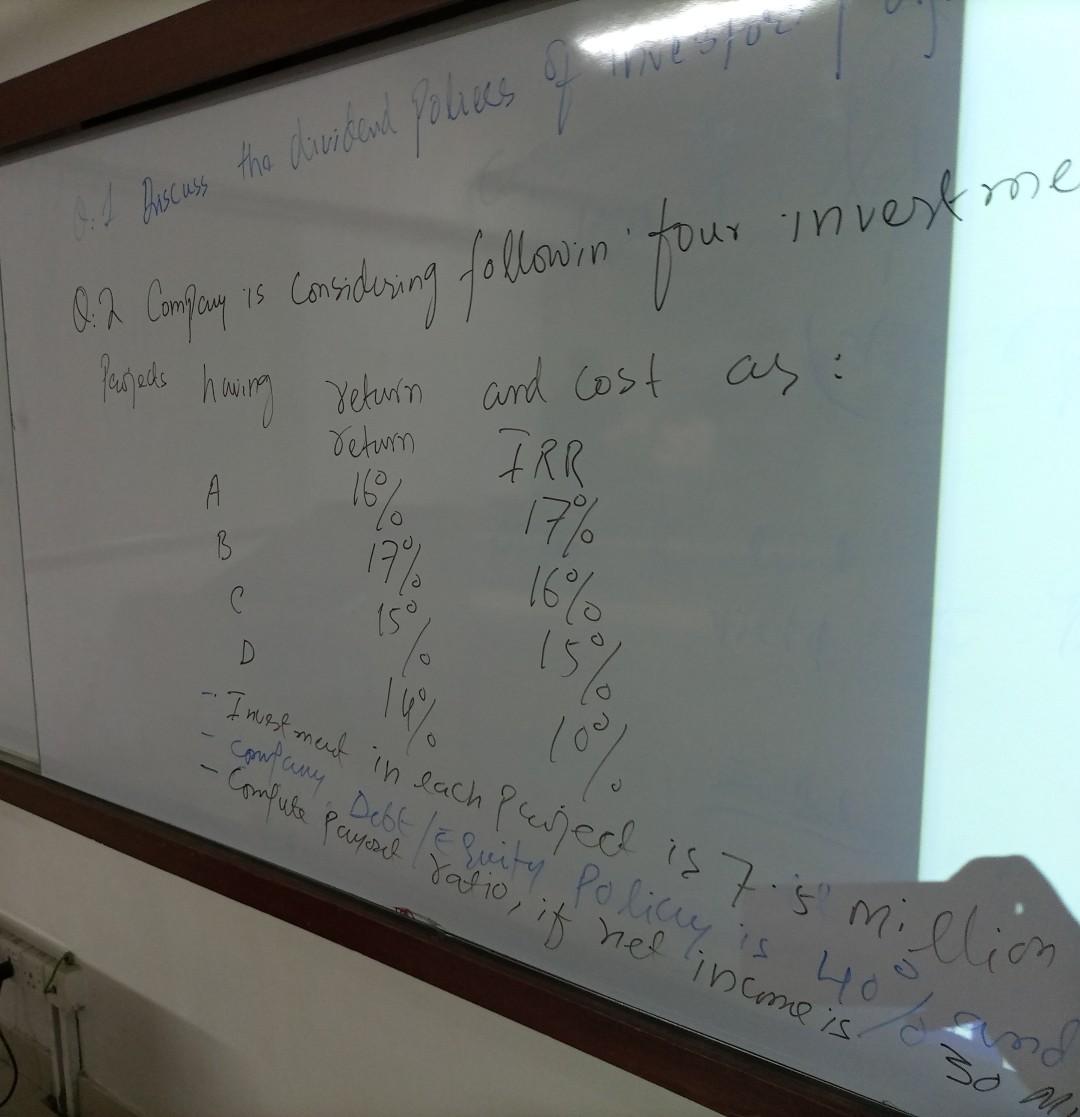 Q.1 Discuss the dividend polices of investor
Q.2 Company is considering followin four investme
Projects having return and cost as :
return IRR
A 16% 17%
B 17% 16%
C 15% 15%
D 14% 10%
- Investment in each Project is 7.5 million
- Company Debt/Equity Policy is 40% and
- Compute payout ratio, if net income is 30 M